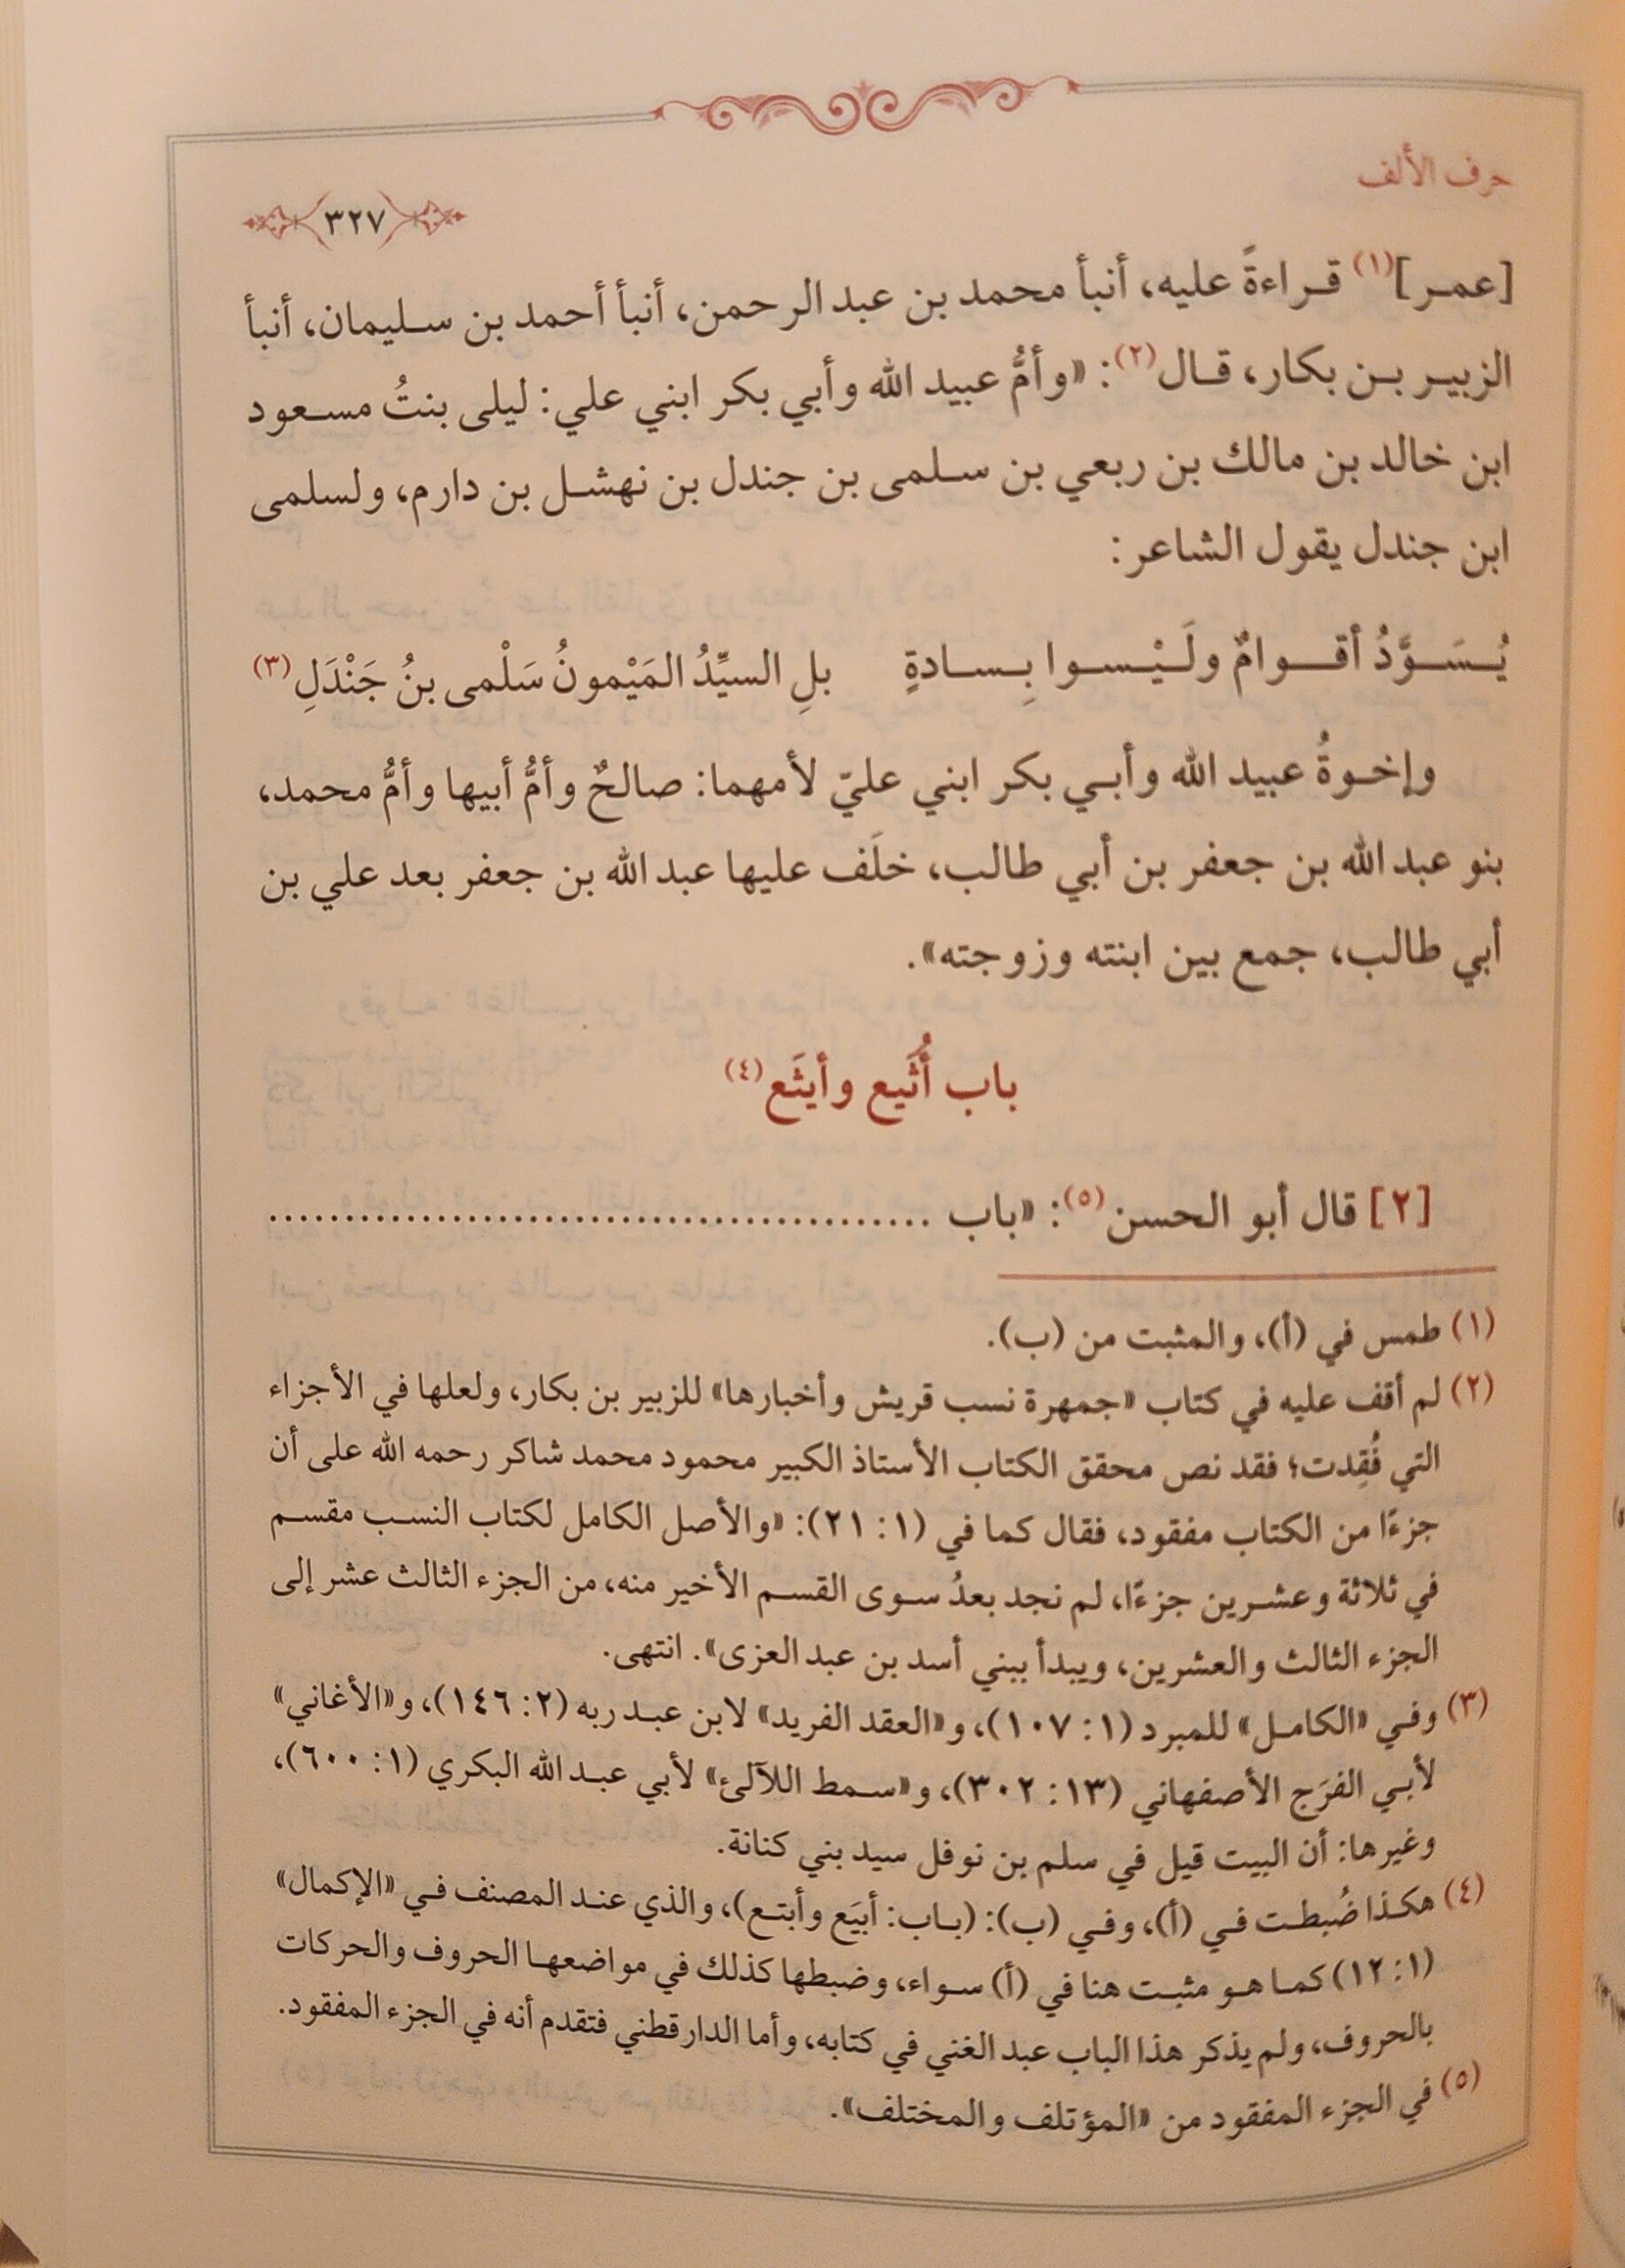 حرف الألف
٣٢٧
[عمر](١) قراءةً عليه، أنبأ محمد بن عبد الرحمن، أنبأ أحمد بن سليمان، أنبأ
الزبير بن بكار، قال(٢): «وأمُّ عبيد الله وأبي بكر ابني علي: ليلى بنتُ مسعود
ابن خالد بن مالك بن ربعي بن سلمى بن جندل بن نهشل بن دارم، ولسلمى
ابن جندل يقول الشاعر:
يُسَوَّدُ أقوامٌ ولَيْسوا بِسادةٍ بلِ السيِّدُ المَيْمونُ سَلْمى بنُ جَنْدَلِ(٣)
وإخوةُ عبيد الله وأبي بكر ابني عليّ لأمهما: صالحٌ وأمُّ أبيها وأمُّ محمد،
بنو عبد الله بن جعفر بن أبي طالب، خلَف عليها عبد الله بن جعفر بعد علي بن
أبي طالب، جمع بين ابنته وزوجته».
باب أُثَيع وأيثَع(٤)
[٢] قال أبو الحسن(٥): «باب ............................................
(١) طمس في (أ)، والمثبت من (ب).
(٢) لم أقف عليه في كتاب «جمهرة نسب قريش وأخبارها» للزبير بن بكار، ولعلها في الأجزاء
التي فُقِدت؛ فقد نص محقق الكتاب الأستاذ الكبير محمود محمد شاكر رحمه الله على أن
جزءًا من الكتاب مفقود، فقال كما في (١: ٢١): «والأصل الكامل لكتاب النسب مقسم
في ثلاثة وعشرين جزءًا، لم نجد بعدُ سوى القسم الأخير منه، من الجزء الثالث عشر إلى
الجزء الثالث والعشرين، ويبدأ ببني أسد بن عبد العزى». انتهى.
(٣) وفي «الكامل» للمبرد (١: ١٠٧)، و«العقد الفريد» لابن عبد ربه (٢: ١٤٦)، و«الأغاني»
لأبي الفرَج الأصفهاني (١٣: ٣٠٢)، و«سمط اللآلئ» لأبي عبد الله البكري (١: ٦٠٠)،
وغيرها: أن البيت قيل في سلم بن نوفل سيد بني كنانة.
(٤) هكذا ضُبطت في (أ)، وفي (ب): (باب: أبيَع وأبتع)، والذي عند المصنف في «الإكمال»
(١: ١٢) كما هو مثبت هنا في (أ) سواء، وضبطها كذلك في مواضعها الحروف والحركات
بالحروف، ولم يذكر هذا الباب عبد الغني في كتابه، وأما الدارقطني فتقدم أنه في الجزء المفقود.
(٥) في الجزء المفقود من «المؤتلف والمختلف».